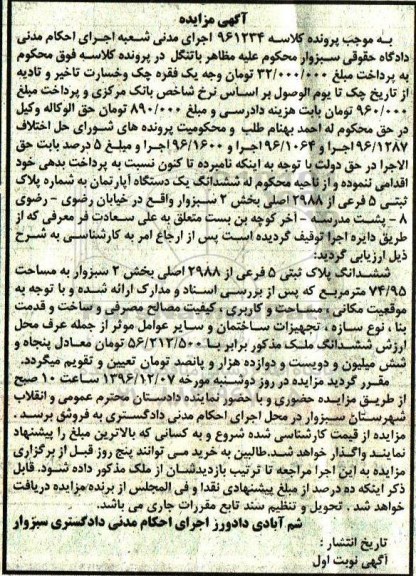 آگهی مزایده
به موجب پرونده کلاسه ۹۶۱۲۳۴ اجرای مدنی شعبه اجرای احکام مدنی
دادگاه حقوقی سبزوار محکوم علیه مظاهر باتنگل در پرونده کلاسه فوق محکوم
به پرداخت مبلغ ۳۲/۰۰۰/۰۰۰ تومان وجه یک فقره چک وخسارت تاخیر و تادیه
از تاریخ چک تا یوم الوصول بر اساس نرخ شاخص بانک مرکزی و پرداخت مبلغ
۹۶۰/۰۰۰ تومان بابت هزینه دادرسی و مبلغ ۸۹۰/۰۰۰ تومان حق الوکاله وکیل
در حق محکوم له احمد بهنام طلب و محکومیت پرونده های شورای حل اختلاف
۹۶/۱۲۸۷ اجرا و ۹۶/۱۰۶۴ اجرا و ۹۶/۱۶۰۰ اجرا و مبلغ ۵ درصد بابت حق
الاجرا در حق دولت با توجه به اینکه نامبرده تا کنون نسبت به پرداخت بدهی خود
اقدامی ننموده و از ناحیه محکوم له ششدانگ یک دستگاه آپارتمان به شماره پلاک
ثبتی ۵ فرعی از ۲۹۸۸ اصلی بخش ۲ سبزوار واقع در خیابان رضوی - رضوی
۸ - پشت مدرسه - آخر کوچه بن بست متعلق به علی سعادت فر معرفی که از
طریق دایره اجرا توقیف گردیده است پس از ارجاع امر به کارشناسی به شرح
ذیل ارزیابی گردید:
ششدانگ پلاک ثبتی ۵ فرعی از ۲۹۸۸ اصلی بخش ۲ سبزوار به مساحت
۷۴/۹۵ مترمربع که پس از بررسی اسناد و مدارک ارائه شده و با توجه به
موقعیت مکانی ، مساحت و کاربری ، کیفیت مصالح مصرفی وساخت و قدمت
بنا ، نوع سازه ، تجهیزات ساختمان و سایر عوامل موثر از جمله عرف محل
ارزش ششدانگ ملک مذکور برابر با ۵۶/۲۱۲/۵۰۰ تومان معادل پنجاه و
شش میلیون و دویست و دوازده هزار و پانصد تومان تعیین و تقویم میگردد.
مقرر گردید مزایده در روز دوشنبه مورخه ۱۳۹۶/۱۲/۰۷ ساعت ۱۰ صبح
از طریق مزایده حضوری و با حضور نماینده دادستان محترم عمومی و انقلاب
شهرستان سبزوار در محل اجرای احکام مدنی دادگستری به فروش برسد .
مزایده از قیمت کارشناسی شده شروع و به کسانی که بالاترین مبلغ را پیشنهاد
نمایند واگذار خواهد شد.طالبین به خرید می توانند پنج روز قبل از برگزاری
مزایده به این اجرا مراجعه تا ترتیب بازدیدشان از ملک مذکور داده شود. قابل
ذکر اینکه ده درصد از مبلغ پیشنهادی نقدا و فی المجلس از برنده مزایده دریافت
خواهد شد . تحویل و تنظیم سند تابع مقررات جاری می باشد.
شم آبادی دادورز اجرای احکام مدنی دادگستری سبزوار
تاریخ انتشار :
آگهی نوبت اول